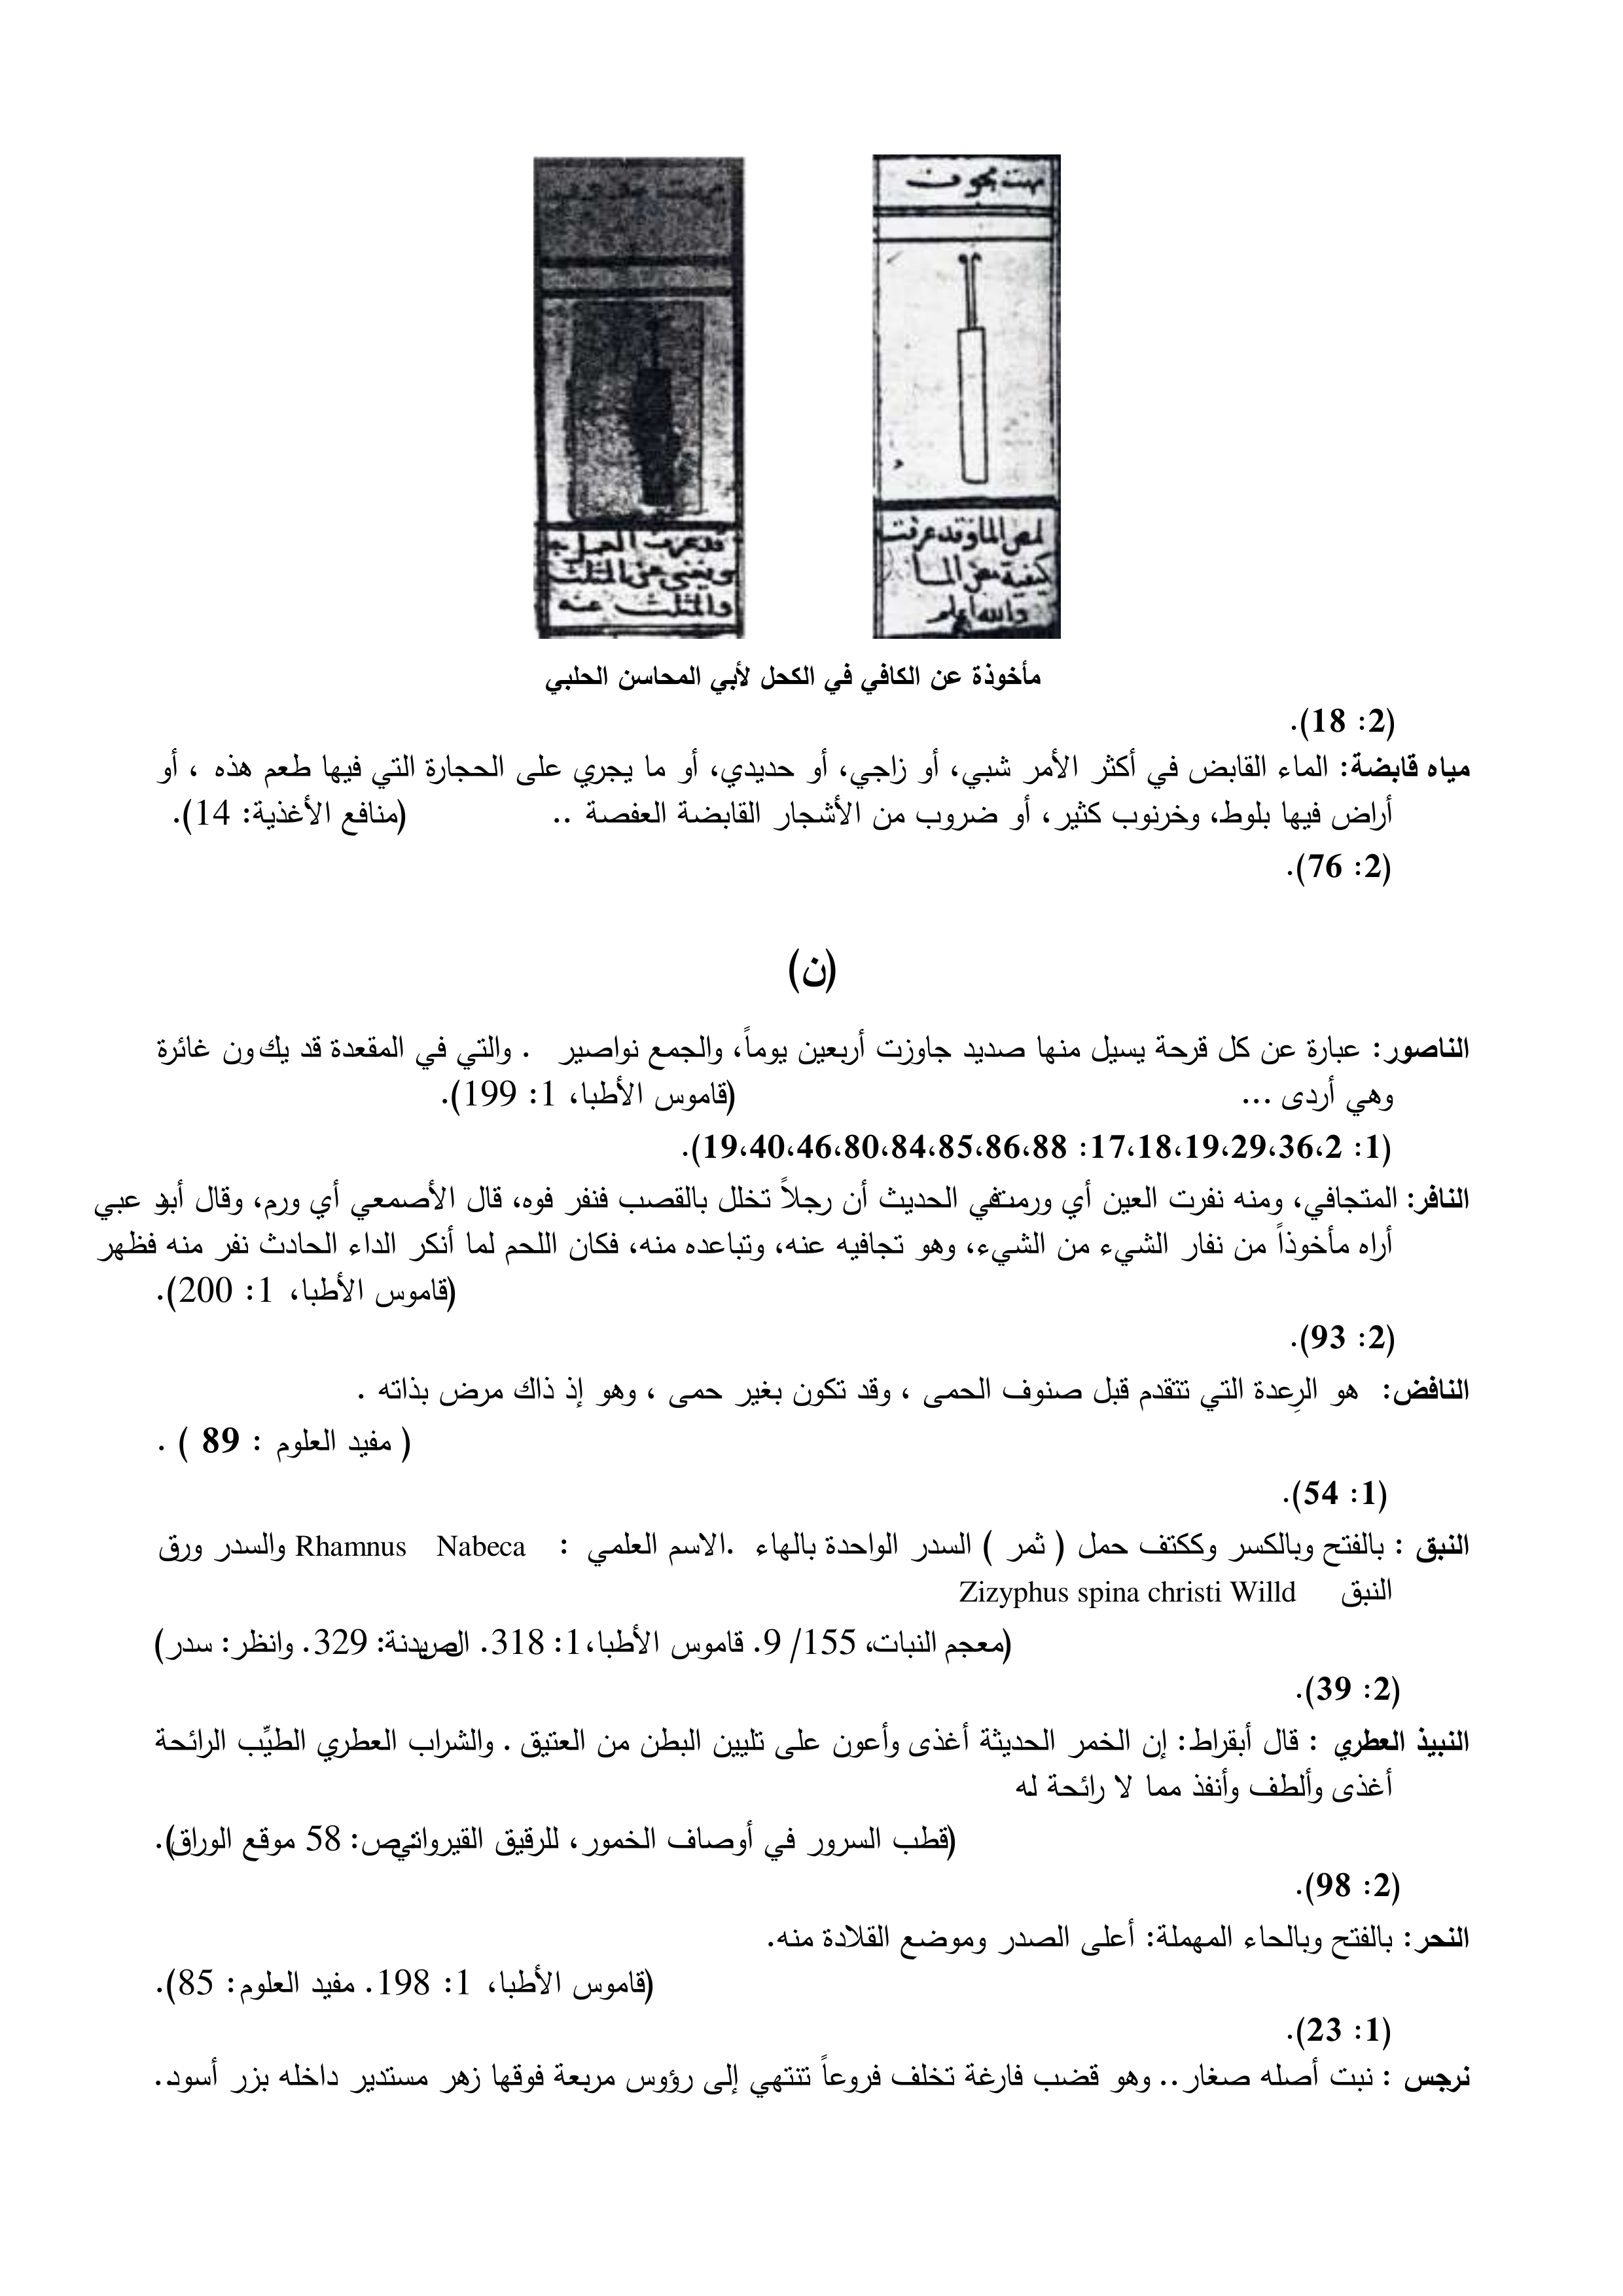 مهت مجوف
لمص الما وقد عرفت
كيفية مص الما
والله اعلم
قد عرف العمل به
ويغني عن المثلث
والمثلث عنه
مأخوذة عن الكافي في الكحل لأبي المحاسن الحلبي
(2: 18).
مياه قابضة: الماء القابض في أكثر الأمر شبي، أو زاجي، أو حديدي، أو ما يجري على الحجارة التي فيها طعم هذه ، أو
أراض فيها بلوط، وخرنوب كثير، أو ضروب من الأشجار القابضة العفصة .. (منافع الأغذية: 14).
(2: 76).
(ن)
الناصور: عبارة عن كل قرحة يسيل منها صديد جاوزت أربعين يوماً، والجمع نواصير . والتي في المقعدة قد يكون غائرة
وهي أردى ... (قاموس الأطبا، 1: 199).
(1: 17،18،19،29،36،2: 19،40،46،80،84،85،86،88).
النافر: المتجافي، ومنه نفرت العين أي ورمت في الحديث أن رجلاً تخلل بالقصب فنفر فوه، قال الأصمعي أي ورم، وقال أبو عبيد
أراه مأخوذاً من نفار الشيء من الشيء، وهو تجافيه عنه، وتباعده منه، فكان اللحم لما أنكر الداء الحادث نفر منه فظهر
(قاموس الأطبا، 1: 200).
(2: 93).
النافض: هو الرِعدة التي تتقدم قبل صنوف الحمى ، وقد تكون بغير حمى ، وهو إذ ذاك مرض بذاته .
( مفيد العلوم : 89 ) .
(1: 54).
النبق : بالفتح وبالكسر وككتف حمل ( ثمر ) السدر الواحدة بالهاء .الاسم العلمي : Rhamnus Nabeca والسدر ورق
النبق Zizyphus spina christi Willd
(معجم النبات، 155/ 9. قاموس الأطبا،1: 318. الصيدنة: 329. وانظر: سدر)
(2: 39).
النبيذ العطري : قال أبقراط: إن الخمر الحديثة أغذى وأعون على تليين البطن من العتيق . والشراب العطري الطيِّب الرائحة
أغذى وألطف وأنفذ مما لا رائحة له
(قطب السرور في أوصاف الخمور، للرقيق القيرواني ص: 58 موقع الوراق).
(2: 98).
النحر: بالفتح وبالحاء المهملة: أعلى الصدر وموضع القلادة منه.
(قاموس الأطبا، 1: 198. مفيد العلوم: 85).
(1: 23).
نرجس : نبت أصله صغار.. وهو قضب فارغة تخلف فروعاً تنتهي إلى رؤوس مربعة فوقها زهر مستدير داخله بزر أسود..